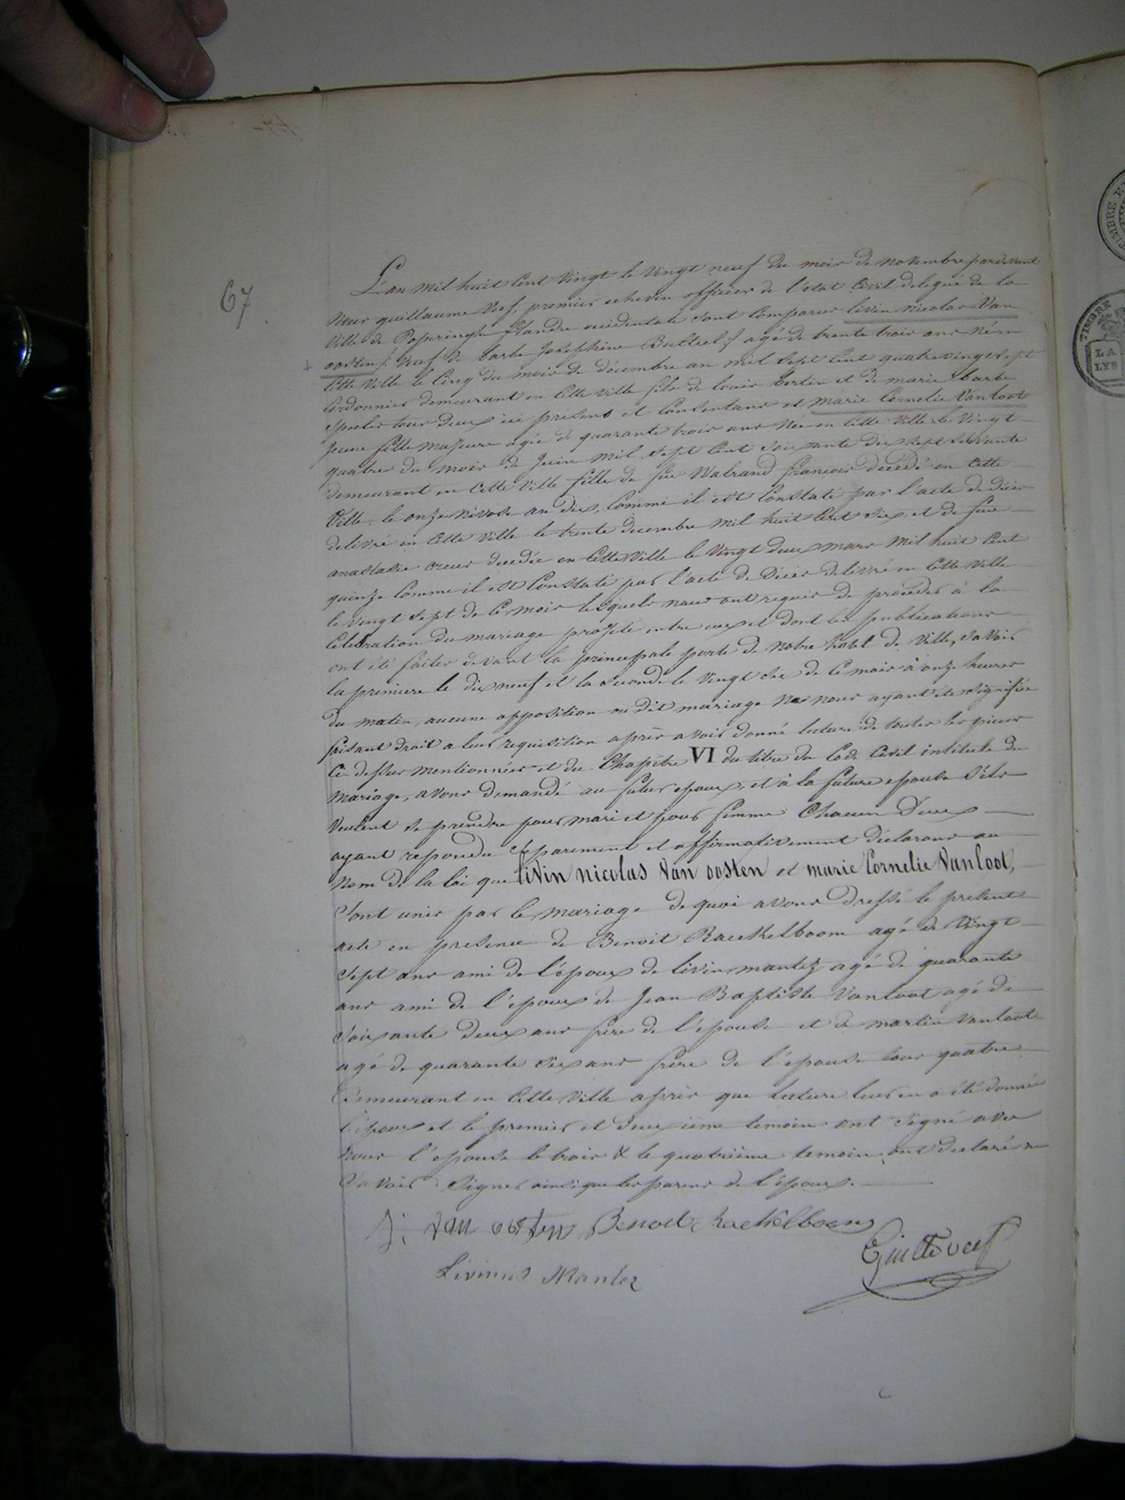 67
L'an mil huit cent vingt le vingt neuf du mois de novembre pardevant
Nous guillaume Veef premier echevin officier de l'etat civil delegué de la
Ville de Poperinghe flandre occidentale sont comparus livin nicolas Van
oosten, veuf de Barbe Josephine agé de trente trois ans Né en
Cette Ville le Cinq du mois de décembre an mil sept cent quatre vingt sept
Cordonnier demeurant en Cette Ville fils de louis et de marie
epoux tous deux ici presens et Consentans et marie Cornelie Vanloot
jeune fille majeure agée de quarante trois ans Née en Cette Ville le Vingt
quatre du mois de Juin mil sept cent soixante dix sept servante
demeurant en Cette Ville fille de feu Walrand francois decedé en Cette
Ville le onze nivose an dix, Comme il est Constaté par l'acte de décès
delivré en Cette Ville le trente decembre mil huit cent dix et de feue
anastasie decedée en Cette Ville le Vingt deux mars mil huit cent
quinze Comme il est Constaté par l'acte de Décès delivré en Cette Ville
le Vingt sept de Ce mois lesquels nous ont requis de proceder à la
Celebration du mariage projeté entre eux et dont les publications
ont été faites devant la principale porte de notre hotel de Ville, savoir
la premiere le dix neuf et la seconde le Vingt six de Ce mois à onze heures
du matin, aucune opposition au dit mariage ne nous ayant été signifiée
faisant droit a leur requisition après avoir donné lecture de toutes les pieces
Ci dessus mentionnées et du Chapitre VI du titre du Code Civil intitulé du
Mariage, avons demandé au futur epoux et à la future epouse s'ils
Veulent se prendre pour mari et pour femme Chacun D'eux
ayant repondu separement et affirmativement déclarons au
Nom de la loi que livin nicolas Van oosten et marie Cornelie Vanloot,
sont unis par le mariage de quoi avons dressé le present
acte en presence de Benoit Raeckelboom agé de Vingt
sept ans ami de l'époux de livin mantez agé de quarante
ans ami de l'epoux de Jean Baptiste Vanloot agé de
soixante deux ans frere de l'epouse et de martin Vanloot
agé de quarante six ans frère de l'epouse tous quatre
demeurant en Cette Ville après que lecture leur en a été donnée
l'epoux et le premier et deuxieme temoin ont signé avec
nous l'epouse le trois & le quatrième temoin ont declaré ne
savoir signer ainsi que les parens de l'époux.
van oosten Benoit Raeckelboom
Livinus Mantez
Guille Veef
TIMBRE
LA
LYS